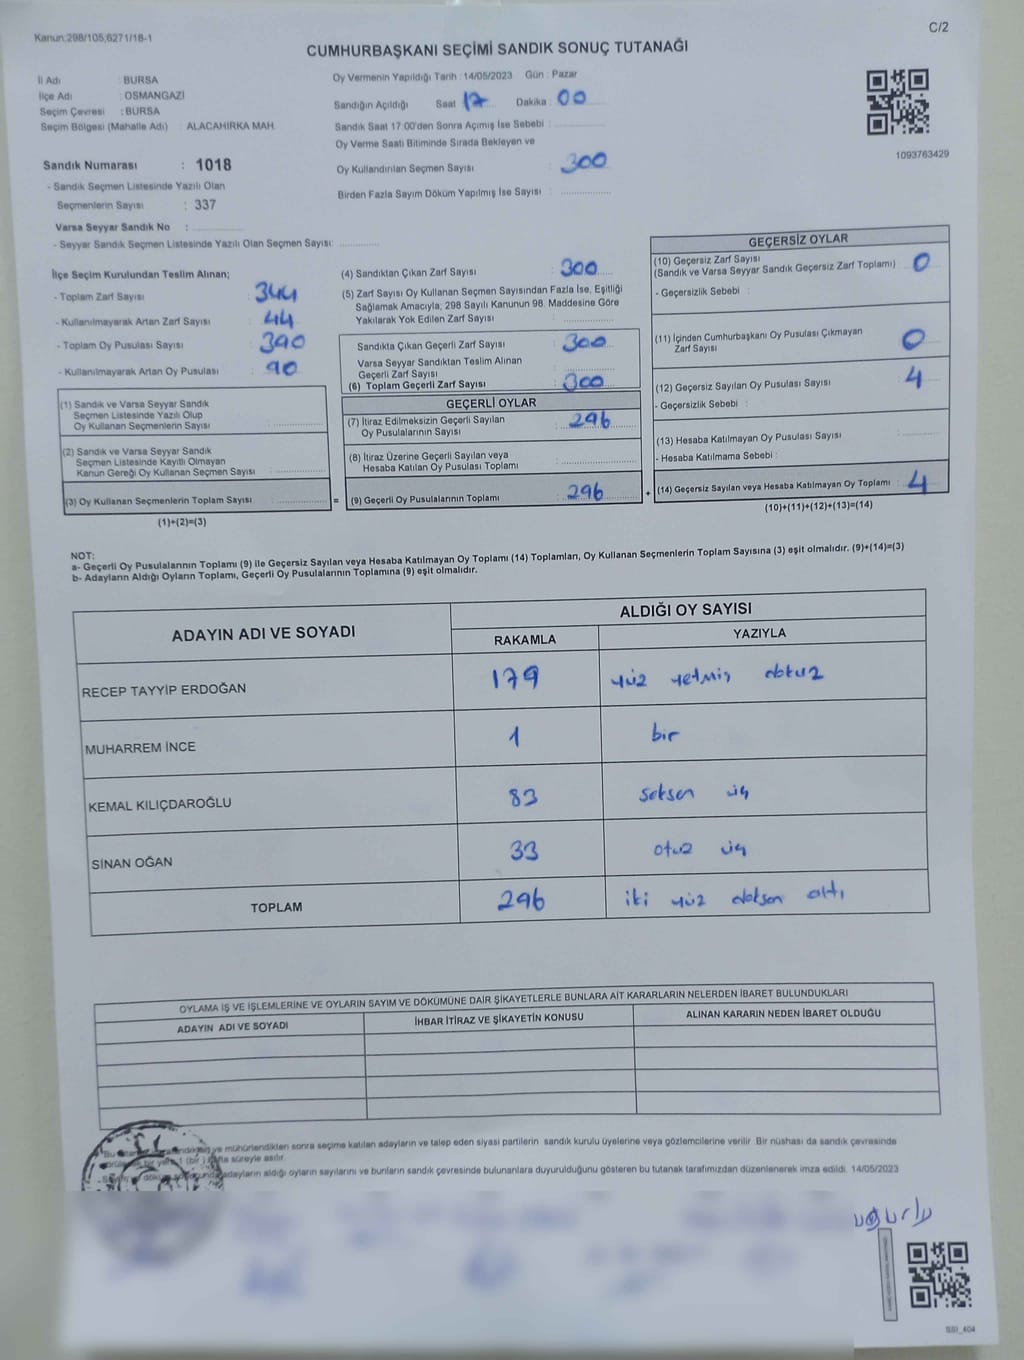 Kanun:298/105,6271/18-1
C/2
CUMHURBAŞKANI SEÇİMİ SANDIK SONUÇ TUTANAĞI
İl Adı : BURSA
İlçe Adı : OSMANGAZİ
Seçim Çevresi : BURSA
Seçim Bölgesi (Mahalle Adı) : ALACAHIRKA MAH.
Sandık Numarası : 1018
- Sandık Seçmen Listesinde Yazılı Olan
Seçmenlerin Sayısı : 337
Varsa Seyyar Sandık No :
- Seyyar Sandık Seçmen Listesinde Yazılı Olan Seçmen Sayısı:
Oy Vermenin Yapıldığı Tarih : 14/05/2023 Gün : Pazar
Sandığın Açıldığı Saat 17 Dakika : 00
Sandık Saat 17:00'den Sonra Açımış İse Sebebi :
Oy Verme Saati Bitiminde Sırada Bekleyen ve
Oy Kullandırılan Seçmen Sayısı : 300
Birden Fazla Sayım Döküm Yapılmış İse Sayısı :
1093763429
İlçe Seçim Kurulundan Teslim Alınan;
- Toplam Zarf Sayısı : 344
- Kullanılmayarak Artan Zarf Sayısı : 44
- Toplam Oy Pusulası Sayısı : 390
- Kullanılmayarak Artan Oy Pusulası : 90
(1) Sandık ve Varsa Seyyar Sandık
Seçmen Listesinde Yazılı Olup
Oy Kullanan Seçmenlerin Sayısı :
(2) Sandık ve Varsa Seyyar Sandık
Seçmen Listesinde Kayıtlı Olmayan
Kanun Gereği Oy Kullanan Seçmen Sayısı :
(3) Oy Kullanan Seçmenlerin Toplam Sayısı :
(1)+(2)=(3)
(4) Sandıktan Çıkan Zarf Sayısı : 300
(5) Zarf Sayısı Oy Kullanan Seçmen Sayısından Fazla İse, Eşitliği
Sağlamak Amacıyla, 298 Sayılı Kanunun 98. Maddesine Göre
Yakılarak Yok Edilen Zarf Sayısı :
Sandıkta Çıkan Geçerli Zarf Sayısı : 300
Varsa Seyyar Sandıktan Teslim Alınan
Geçerli Zarf Sayısı :
(6) Toplam Geçerli Zarf Sayısı : 300
GEÇERLİ OYLAR
(7) İtiraz Edilmeksizin Geçerli Sayılan
Oy Pusulalarının Sayısı : 296
(8) İtiraz Üzerine Geçerli Sayılan veya
Hesaba Katılan Oy Pusulası Toplamı :
= (9) Geçerli Oy Pusulalarının Toplamı : 296
GEÇERSİZ OYLAR
(10) Geçersiz Zarf Sayısı
(Sandık ve Varsa Seyyar Sandık Geçersiz Zarf Toplamı) : 0
- Geçersizlik Sebebi :
(11) İçinden Cumhurbaşkanı Oy Pusulası Çıkmayan
Zarf Sayısı : 0
(12) Geçersiz Sayılan Oy Pusulası Sayısı : 4
- Geçersizlik Sebebi :
(13) Hesaba Katılmayan Oy Pusulası Sayısı :
- Hesaba Katılmama Sebebi :
+ (14) Geçersiz Sayılan veya Hesaba Katılmayan Oy Toplamı : 4
(10)+(11)+(12)+(13)=(14)
NOT:
a- Geçerli Oy Pusulalarının Toplamı (9) ile Geçersiz Sayılan veya Hesaba Katılmayan Oy Toplamı (14) Toplamları, Oy Kullanan Seçmenlerin Toplam Sayısına (3) eşit olmalıdır. (9)+(14)=(3)
b- Adayların Aldığı Oyların Toplamı, Geçerli Oy Pusulalarının Toplamına (9) eşit olmalıdır.
ADAYIN ADI VE SOYADI
ALDIĞI OY SAYISI
RAKAMLA YAZIYLA
RECEP TAYYİP ERDOĞAN 179 yüz yetmiş dokuz
MUHARREM İNCE 1 bir
KEMAL KILIÇDAROĞLU 83 seksen üç
SİNAN OĞAN 33 otuz üç
TOPLAM 296 iki yüz doksan altı
OYLAMA İŞ VE İŞLEMLERİNE VE OYLARIN SAYIM VE DÖKÜMÜNE DAİR ŞİKAYETLERLE BUNLARA AİT KARARLARIN NELERDEN İBARET BULUNDUKLARI
ADAYIN ADI VE SOYADI İHBAR İTİRAZ VE ŞİKAYETİN KONUSU ALINAN KARARIN NEDEN İBARET OLDUĞU
ve mühürlendikten sonra seçime katılan adayların ve talep eden siyasi partilerin sandık kurulu üyelerine veya gözlemcilerine verilir. Bir nüshası da sandık çevresinde
bir 1 (bir) hafta süreyle asılır.
adayların aldığı oyların sayılarını ve bunların sandık çevresinde bulunanlara duyurulduğunu gösteren bu tutanak tarafımızdan düzenlenerek imza edildi. 14/05/2023